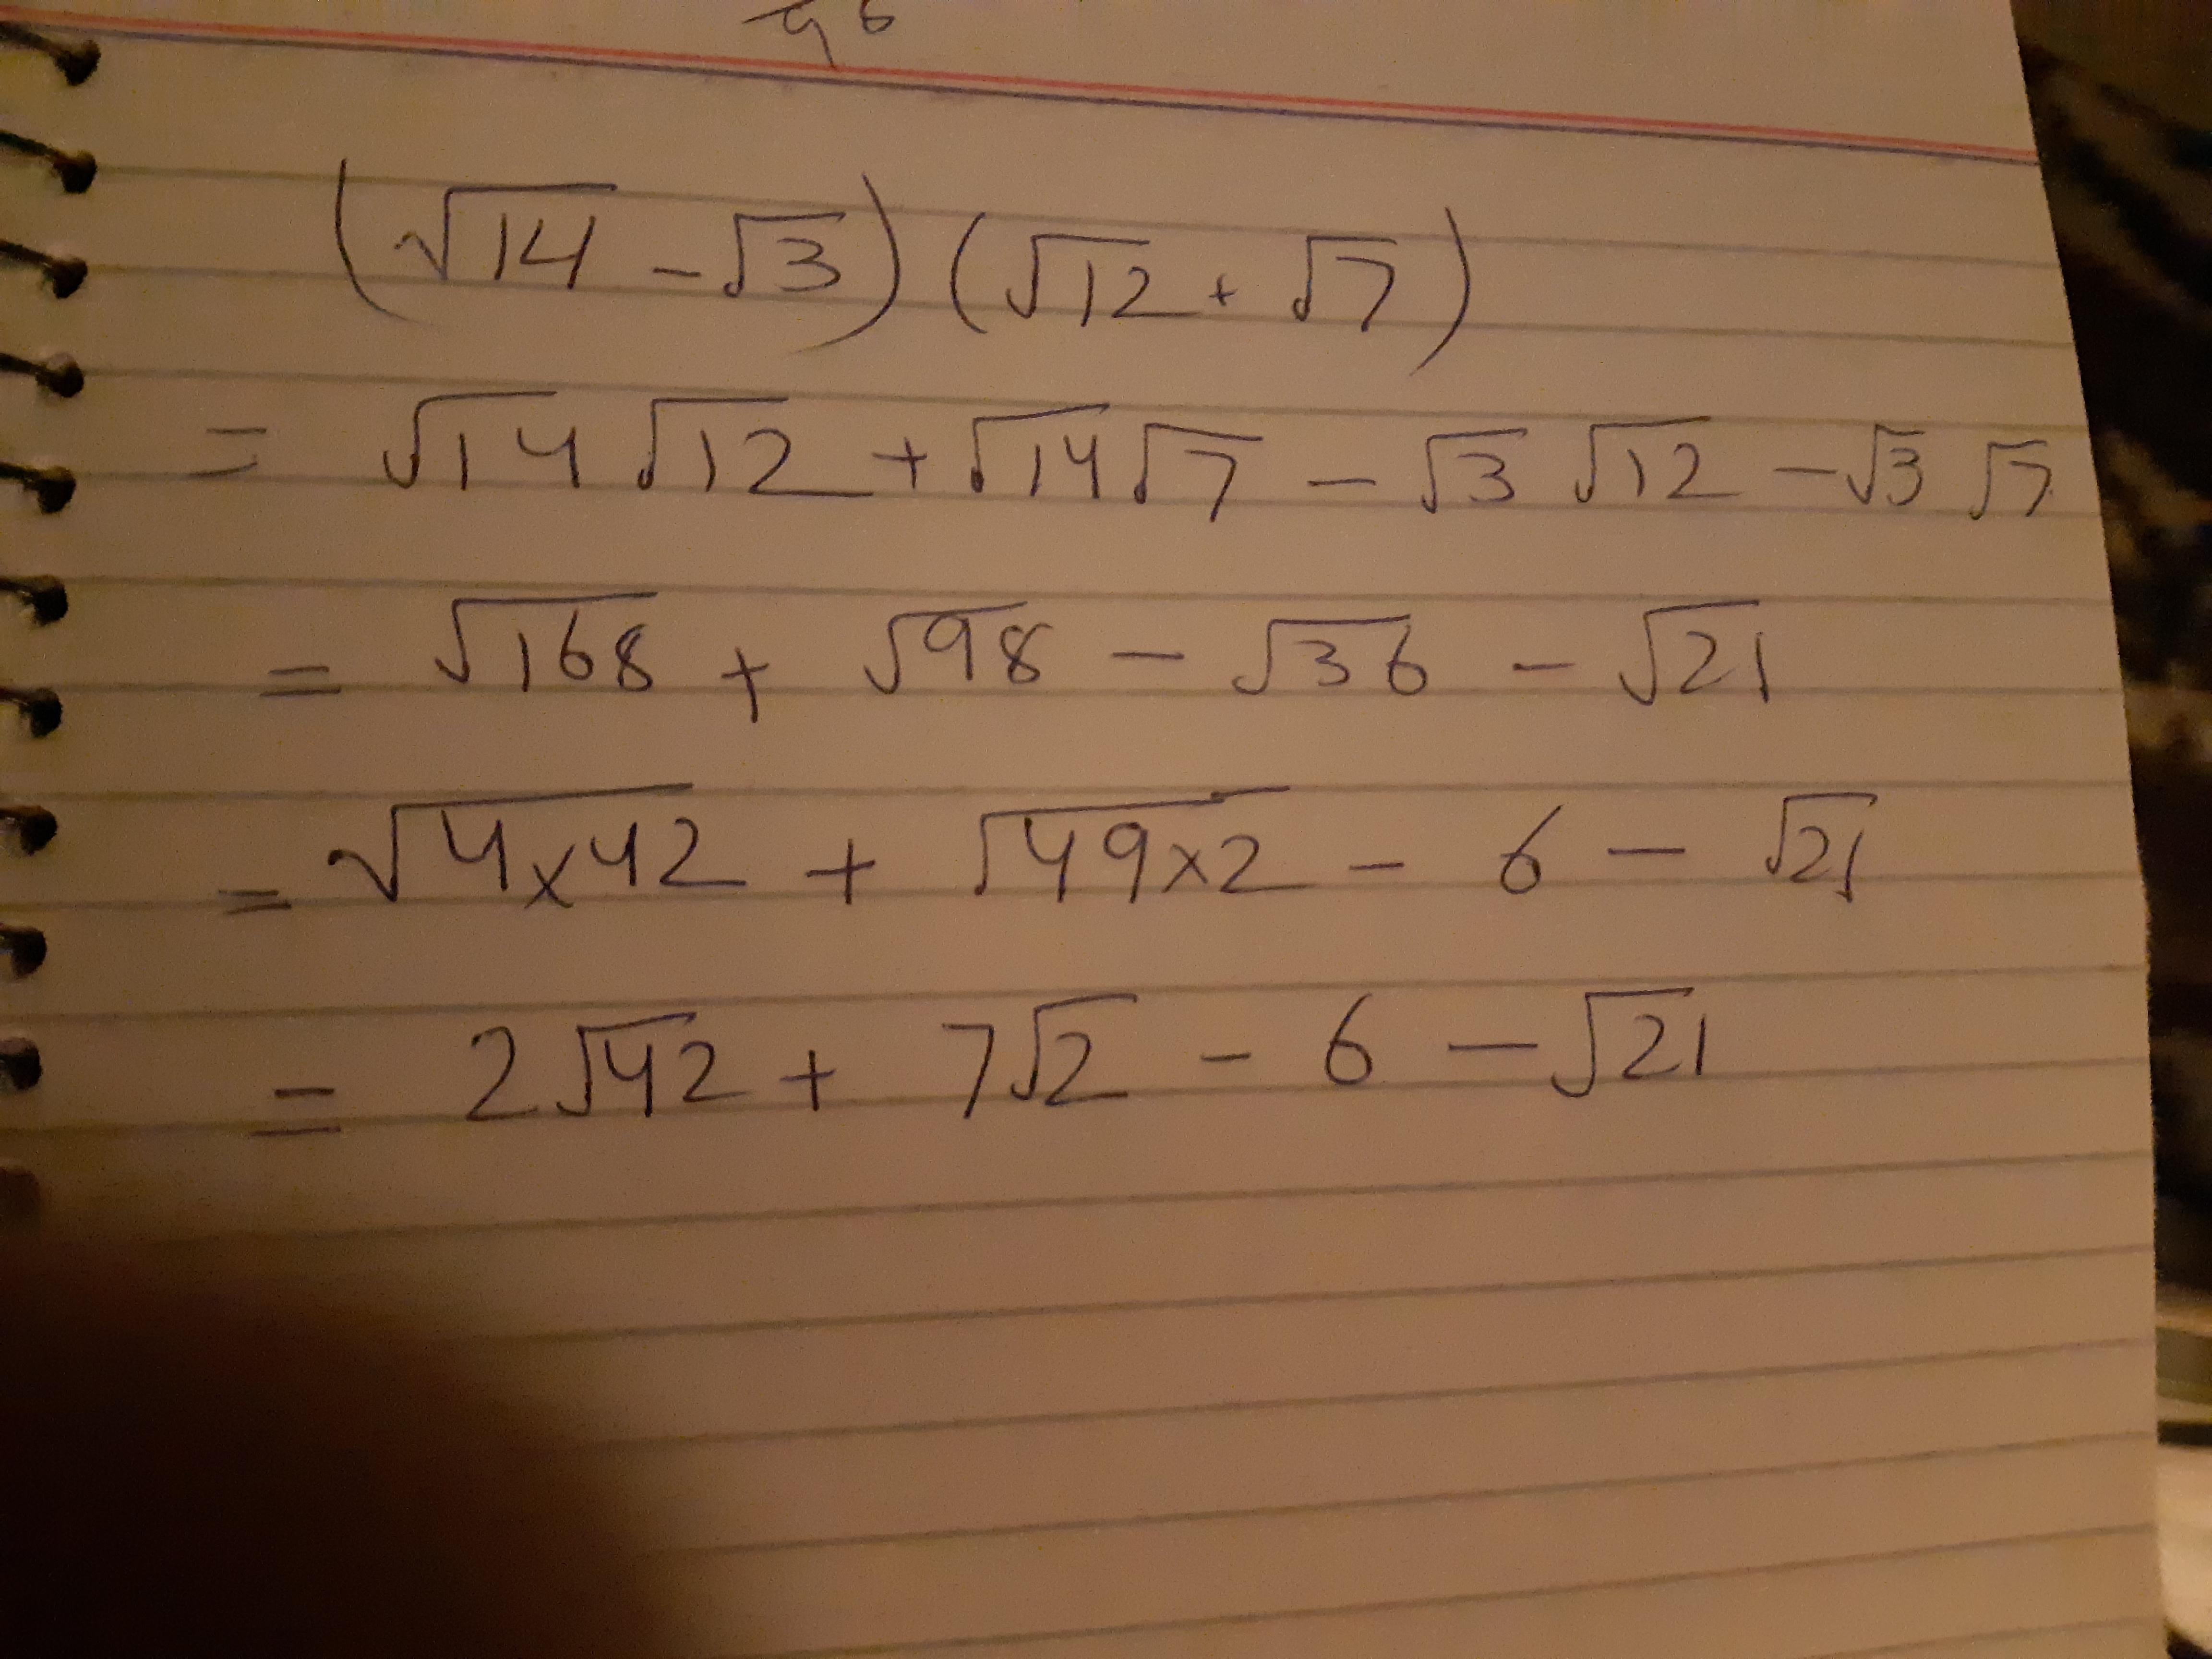 (√14 - √3) (√12 + √7)
= √14 √12 + √14 √7 - √3 √12 - √3 √7
= √168 + √98 - √36 - √21
= √4×42 + √49×2 - 6 - √21
= 2√42 + 7√2 - 6 - √21